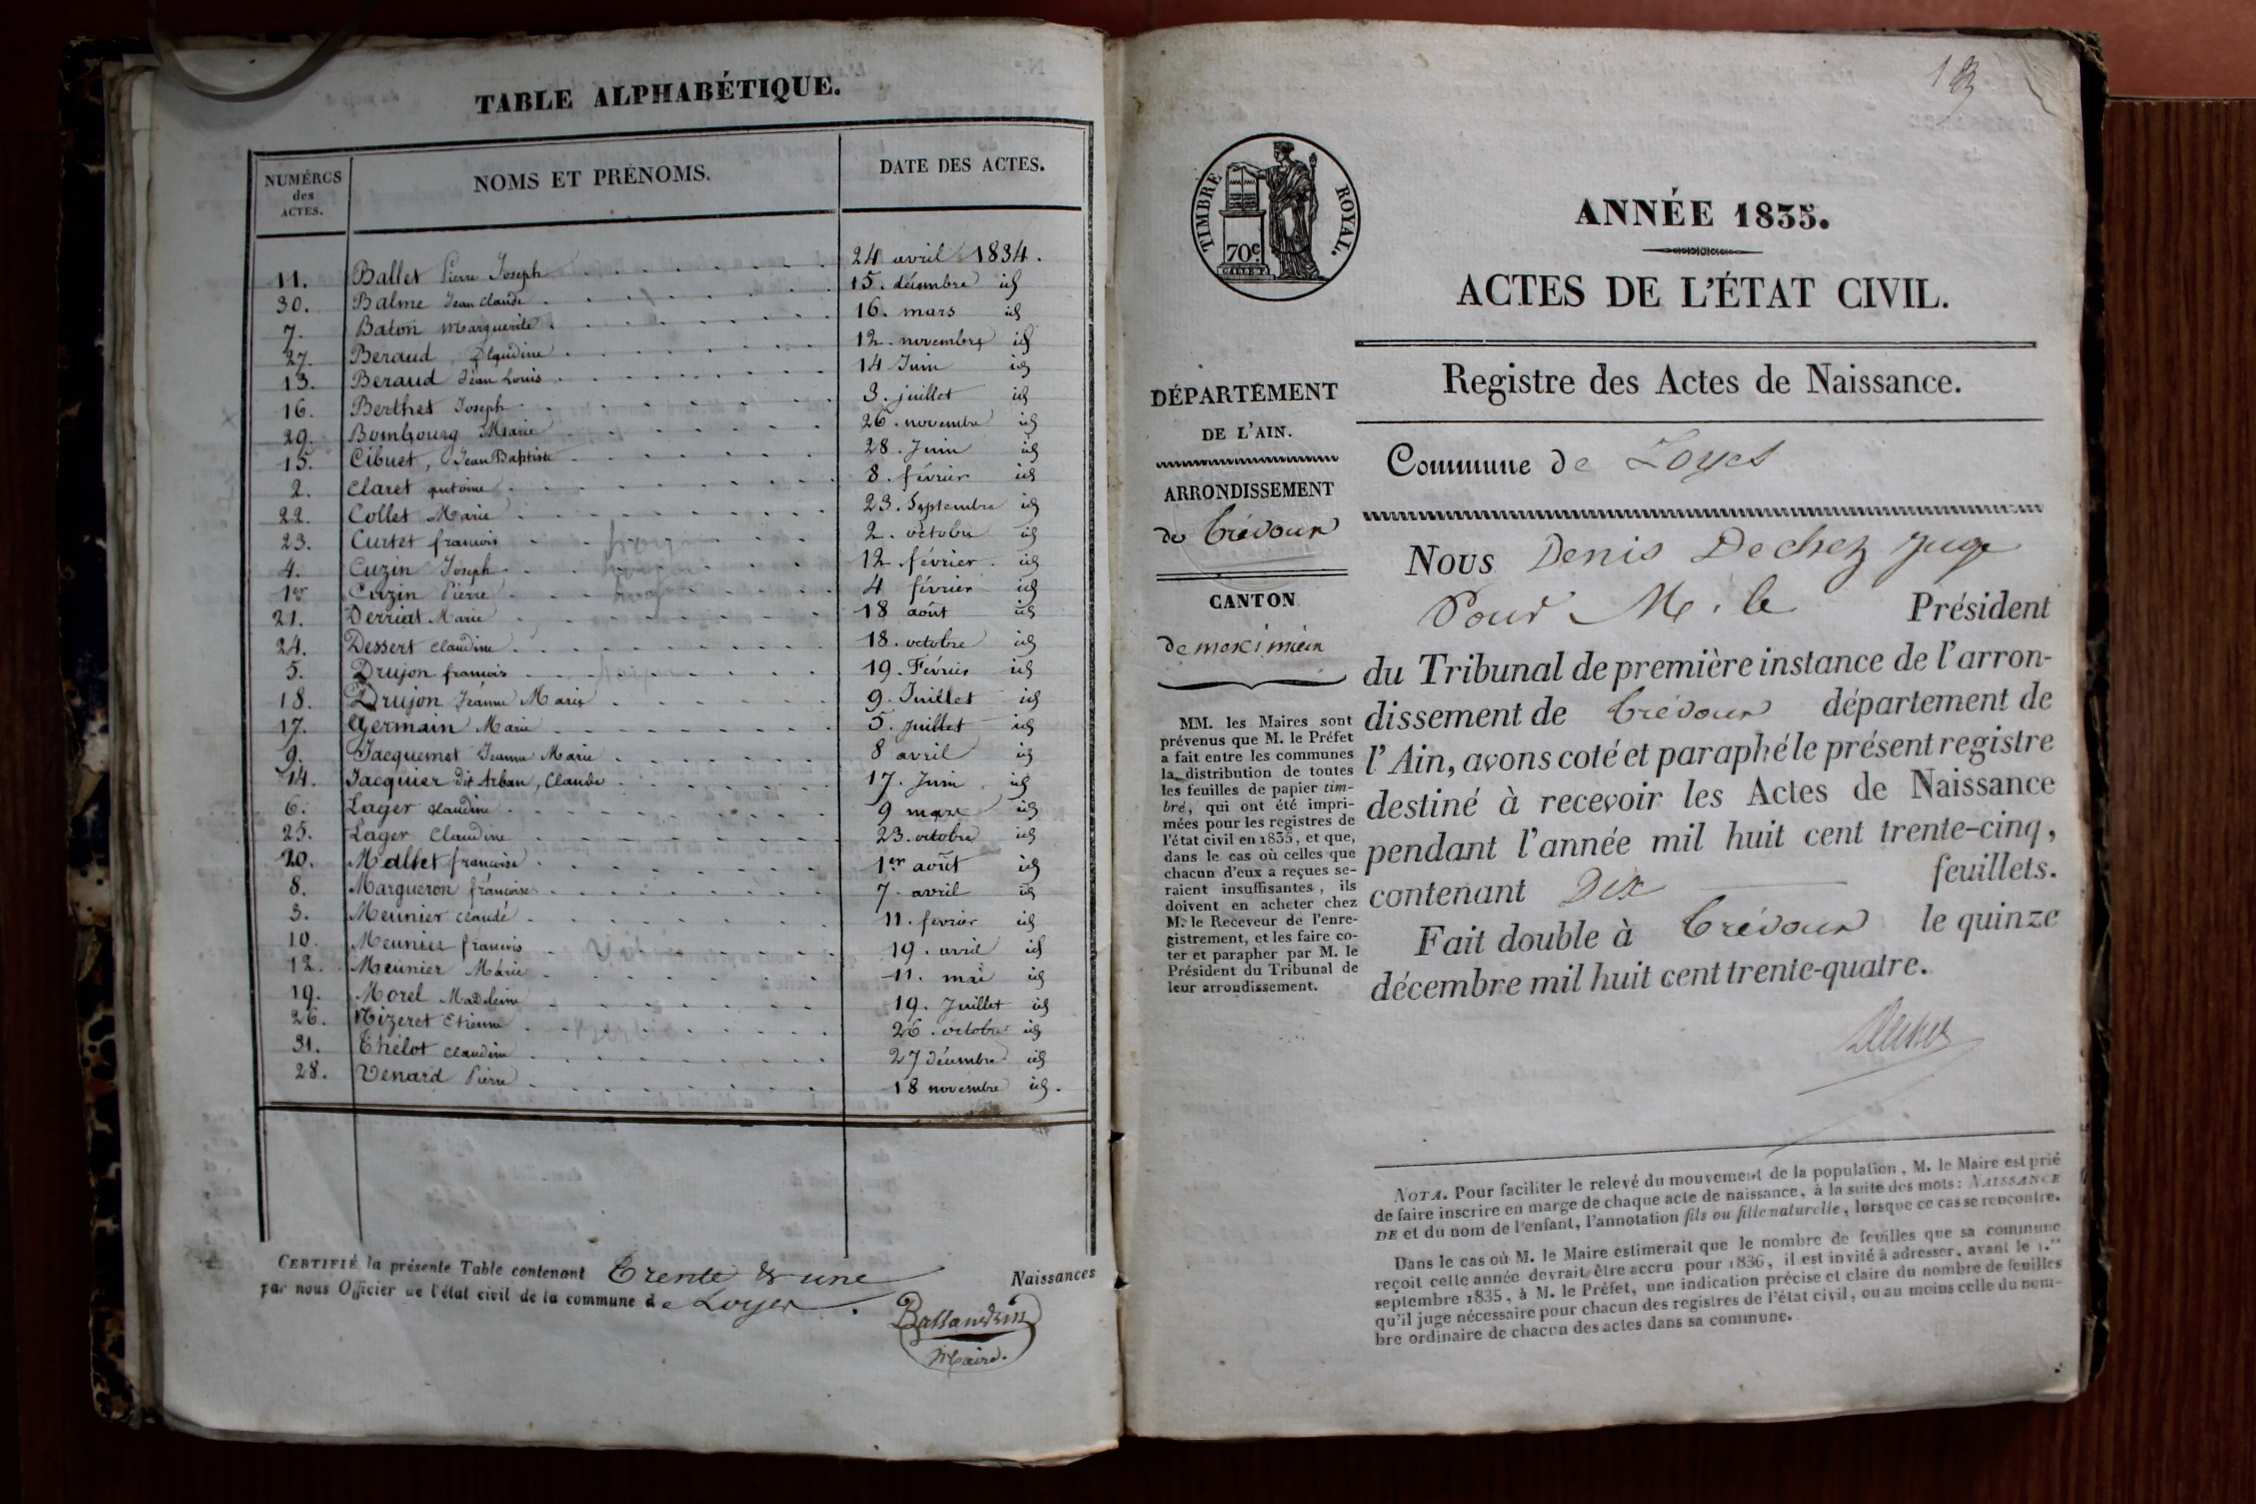 TABLE ALPHABÉTIQUE.
NUMÉROS des ACTES. NOMS ET PRÉNOMS. DATE DES ACTES.
11. Ballet Pierre Joseph 24 avril 1834.
30. Balme Jean Claude 15. décembre id
7. Baton Marguerite 16. mars id
27. Beraud Claudine 12. novembre id
13. Beraud Jean Louis 14 Juin id
16. Berthet Joseph 3. juillet id
29. Bombourg Marie 26. novembre id
15. Cibuet, Jean Baptiste 28. Juin id
2. Claret antoine 8. février id
22. Collet Marie 23. Septembre id
23. Curtet francois 2. octobre id
4. Cuzin Joseph 12 février. id
1er Cuzin Pierre 4 février id
21. Derriat Marie 18 août id
24. Dessert Claudine 18. octobre id
5. Drujon francois 19. Février id
18. Drujon Jeanne Marie 9. Juillet id
17. Germain Marie 5. juillet id
9. Jacquemet Jeanne Marie 8 avril id
14. Jacquier dit Arban, Claude 17. Juin id
6. Lager Claudine 9 mars id
25. Lager Claudine 23. octobre id
20. Mallet francoise 1er août id
8. Margueron francoise 7. avril id
3. Meunier claude 11. fevrier id
10. Meunier francois 19. avril id
12. Meunier Marie 11. mai id
19. Morel Madeleine 19. Juillet id
26. Nizeret Etienne 26. octobre id
31. Thélot Claudine 27 décembre id
28. Venard Pierre 18 novembre id.
CERTIFIÉ la présente Table contenant Trente & une Naissances
par nous Officier de l'état civil de la commune de Loyes.
Ballandrin
Maire.
TIMBRE ROYAL.
70c
ANNÉE 1835.
ACTES DE L'ÉTAT CIVIL.
Registre des Actes de Naissance.
Commune de Loyes
DÉPARTEMENT
DE L'AIN.
ARRONDISSEMENT
de Trévoux
CANTON
de meximieux
MM. les Maires sont
prévenus que M. le Préfet
a fait entre les communes
la distribution de toutes
les feuilles de papier tim-
bré, qui ont été impri-
mées pour les registres de
l'état civil en 1835, et que,
dans le cas où celles que
chacun d'eux a reçues se-
raient insuffisantes, ils
doivent en acheter chez
M. le Receveur de l'enre-
gistrement, et les faire co-
ter et parapher par M. le
Président du Tribunal de
leur arrondissement.
Nous Denis Dechez juge
Pour M. le Président
du Tribunal de première instance de l'arron-
dissement de Trévoux département de
l'Ain, avons coté et paraphé le présent registre
destiné à recevoir les Actes de Naissance
pendant l'année mil huit cent trente-cinq,
contenant Dix feuillets.
Fait double à Trévoux le quinze
décembre mil huit cent trente-quatre.
NOTA. Pour faciliter le relevé du mouvement de la population, M. le Maire est prié
de faire inscrire en marge de chaque acte de naissance, à la suite des mots: NAISSANCE
DE et du nom de l'enfant, l'annotation fils ou fille naturelle, lorsque ce cas se rencontre.
Dans le cas où M. le Maire estimerait que le nombre de feuilles que sa commune
reçoit cette année devrait être accru pour 1836, il est invité à adresser, avant le 1.er
septembre 1835, à M. le Préfet, une indication précise et claire du nombre de feuilles
qu'il juge nécessaire pour chacun des registres de l'état civil, ou au moins celle du nom-
bre ordinaire de chacun des actes dans sa commune.